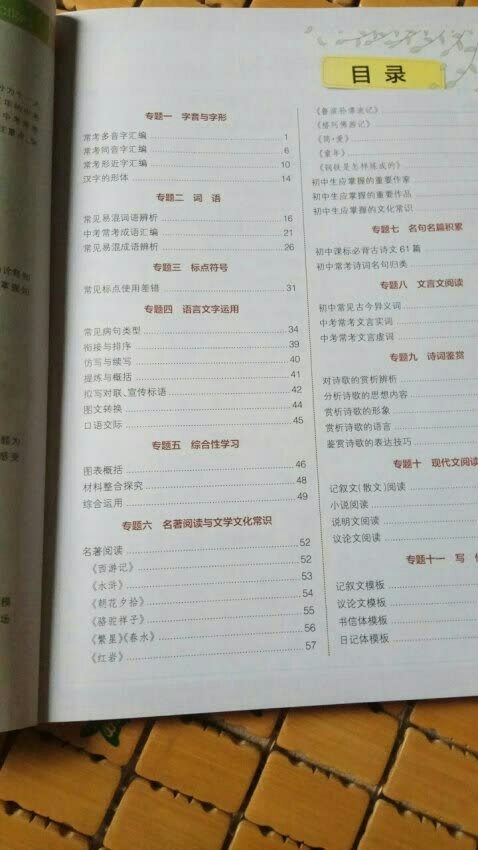 目录
专题一 字音与字形
常考多音字汇编 1
常考同音字汇编 6
常考形近字汇编 10
汉字的形体 14
专题二 词 语
常见易混词语辨析 16
中考常考成语汇编 21
常见易混成语辨析 26
专题三 标点符号
常见标点使用差错 31
专题四 语言文字运用
常见病句类型 34
衔接与排序 39
仿写与续写 40
提炼与概括 41
拟写对联、宣传标语 42
图文转换 44
口语交际 45
专题五 综合性学习
图表概括 46
材料整合探究 48
综合运用 49
专题六 名著阅读与文学文化常识
名著阅读 52
《西游记》 52
《水浒》 53
《朝花夕拾》 54
《骆驼祥子》 55
《繁星》《春水》 56
《红岩》 57
《鲁滨孙漂流记》
《格列佛游记》
《简·爱》
《童年》
《钢铁是怎样炼成的》
初中生应掌握的重要作家
初中生应掌握的重要作品
初中生应掌握的文化常识
专题七 名句名篇积累
初中课标必背古诗文61篇
初中常考诗词名句归类
专题八 文言文阅读
初中常见古今异义词
中考常考文言实词
中考常考文言虚词
专题九 诗词鉴赏
对诗歌的赏析辨析
分析诗歌的思想内容
赏析诗歌的形象
赏析诗歌的语言
鉴赏诗歌的表达技巧
专题十 现代文阅读
记叙文(散文)阅读
小说阅读
说明文阅读
议论文阅读
专题十一 写
记叙文模板
议论文模板
书信体模板
日记体模板